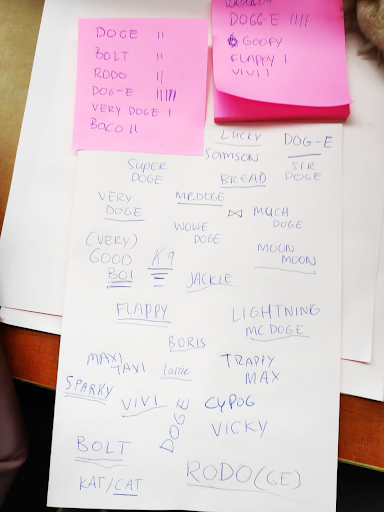 DOGE II
BOLT II
RODO II
DOG-E IIIII
VERY DOGE I
BOCO II
DOGG-E IIII
GOOFY
FLAPPY I
VIVI I
LUCKY
DOG-E
SAMSON
SUPER
DOGE
BREAD
SIR
DOGE
VERY
DOGE
MRDOGE
MUCH
DOGE
WOWE
DOGE
(VERY)
GOOD
BOI
K9
MOON
MOON
JACKIE
FLAPPY
LIGHTNING
MCDOGE
BORIS
MAXI
TAXI
TRAPPY
MAX
SPARKY
VIVI
DOGE
CYPOG
VICKY
BOLT
RODO(GE)
KAT/CAT